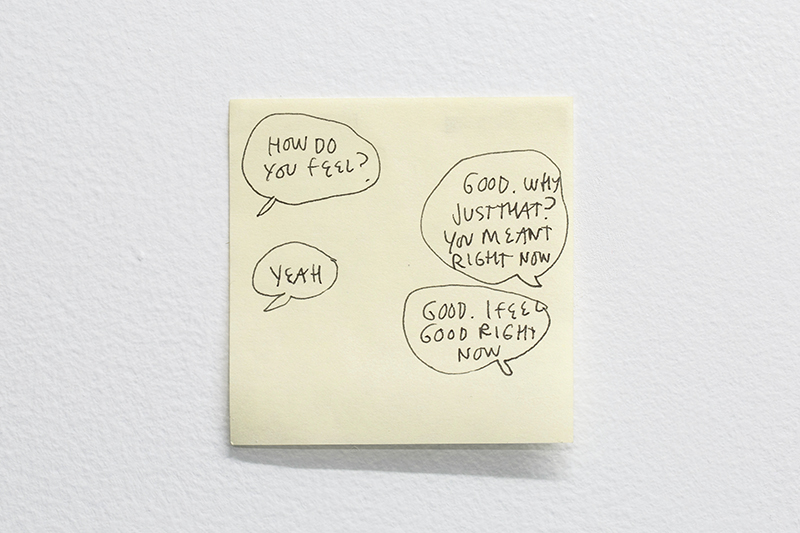 HOW DO
YOU FEEL?
GOOD. WHY
JUST THAT?
YOU MEANT
RIGHT NOW
YEAH
GOOD. I FEEL
GOOD RIGHT
NOW